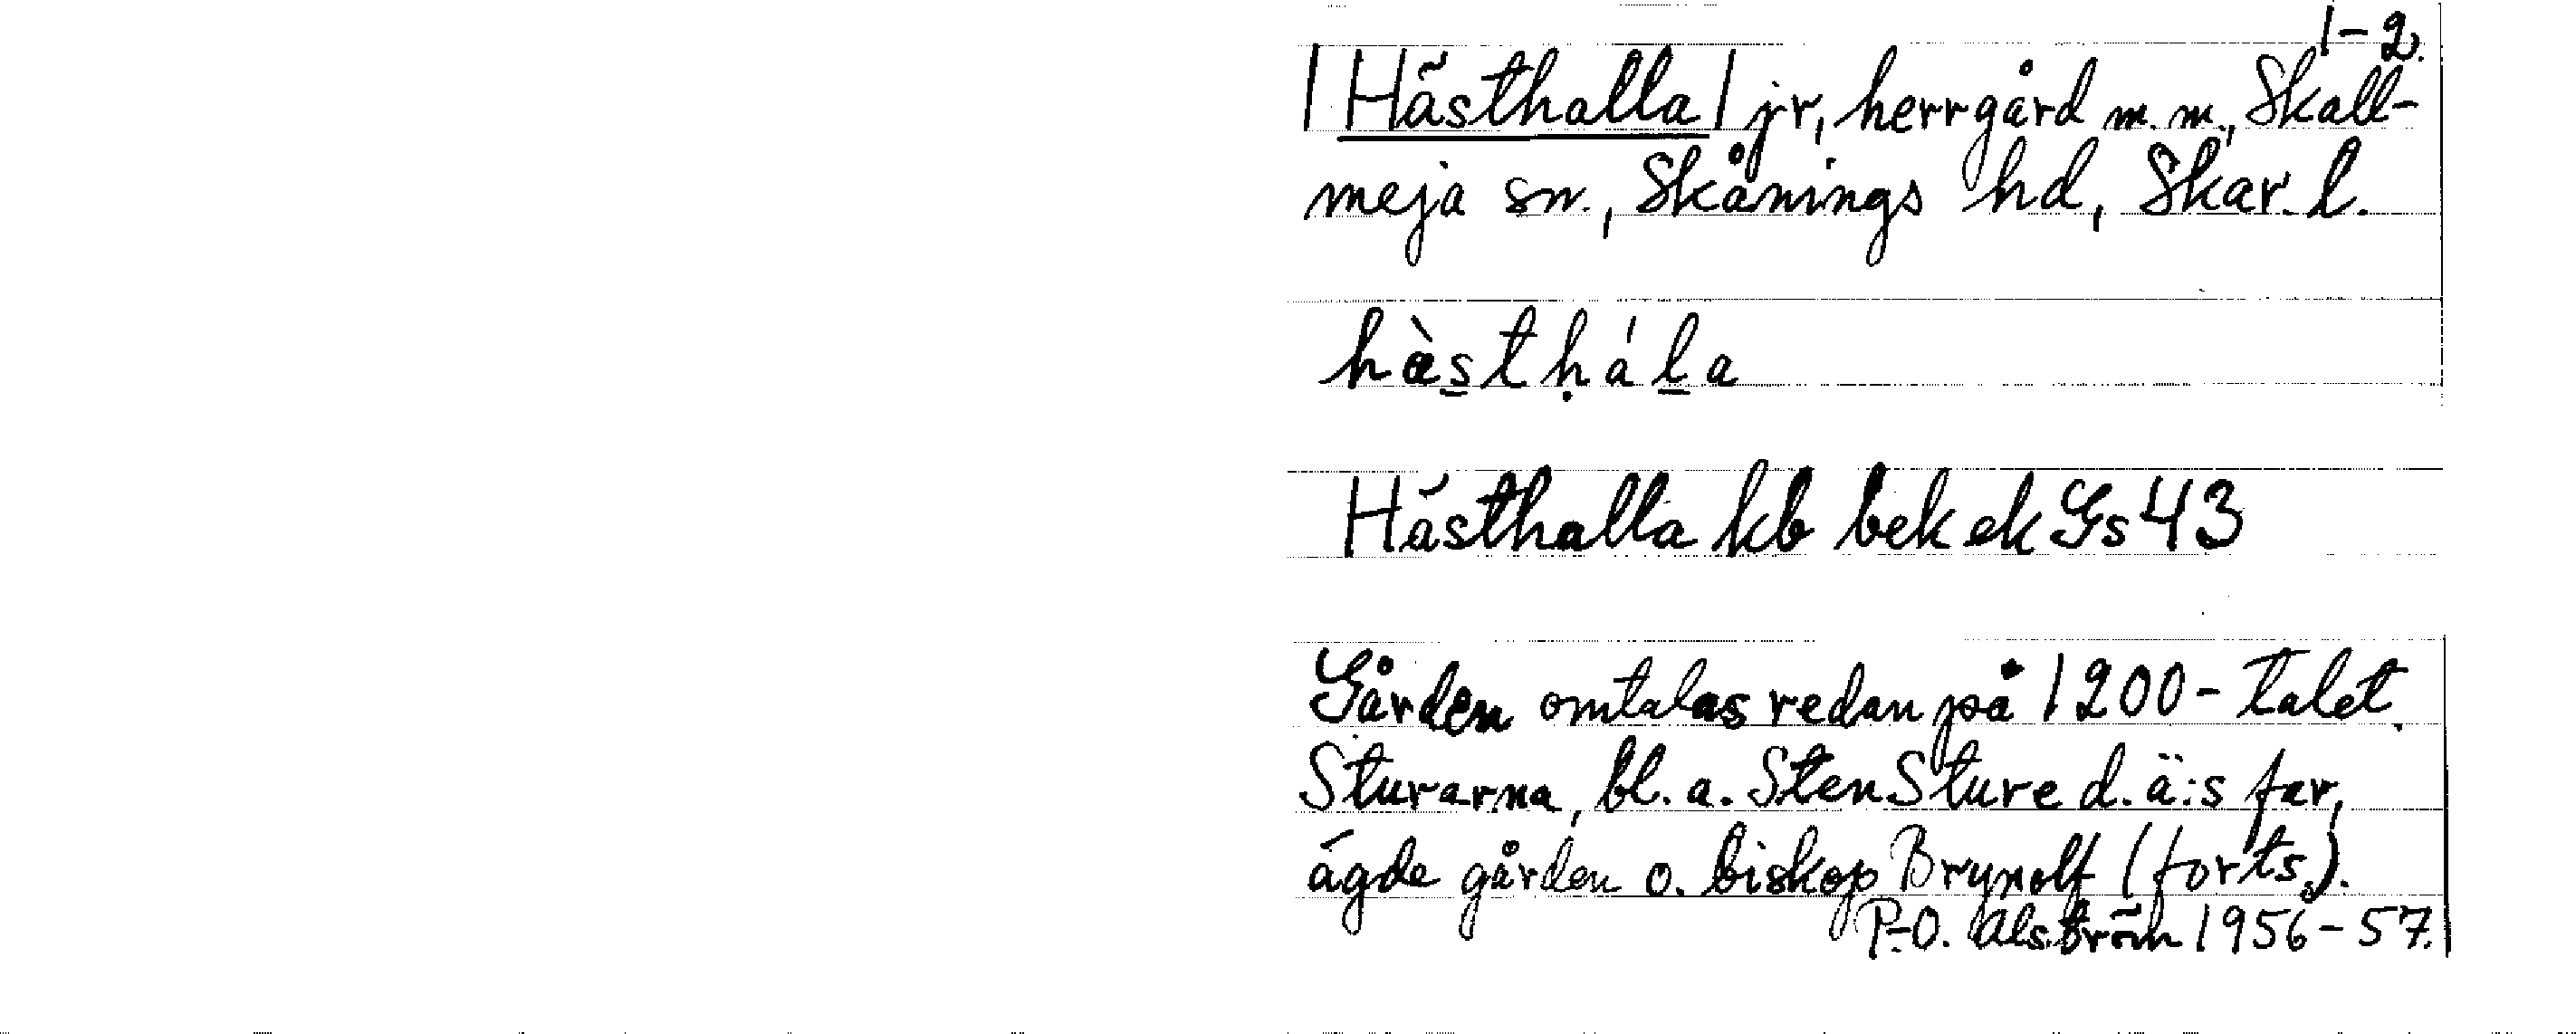 1-2.
| Hästhalla | jr, herrgård m.m., Skall-
meja sn., Skånings hd, Skar. l.
hàsthála
Hästhalla kb bek ek Gs 43
Gården omtalas redan på 1200-talet.
Sturarna, bl. a. Sten Sture d. ä:s far,
ägde gården o. biskop Brynolf (forts.).
P.-O. Alström 1956-57.